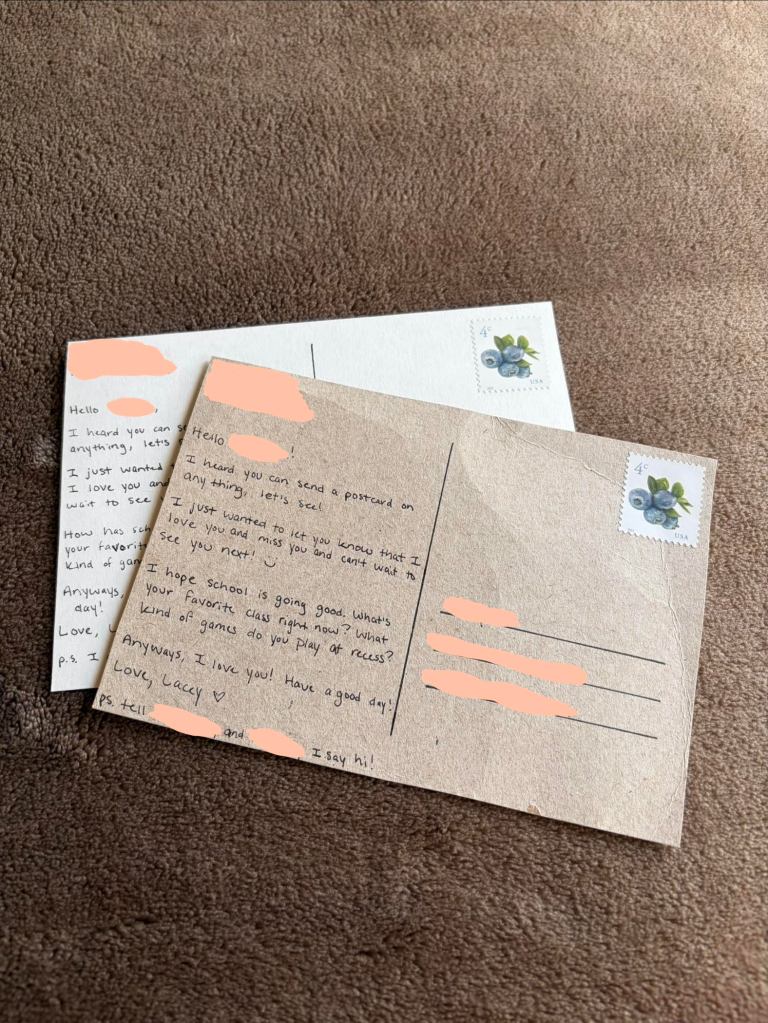 Hello ,
I heard you can se
anything, let's
I just wanted
I love you and
wait to see
How has sch
your favorit
kind of gam
Anyways,
day!
Love,
p.s. I
4c
USA
Hello !
I heard you can send a postcard on
any thing, let's see!
I just wanted to let you know that I
love you and miss you and can't wait to
see you next!
I hope school is going good. What's
your favorite class right now? What
kind of games do you play at recess?
Anyways, I love you! Have a good day!
Love, Lacey ♡
ps. tell , and , I say hi!
4c
USA